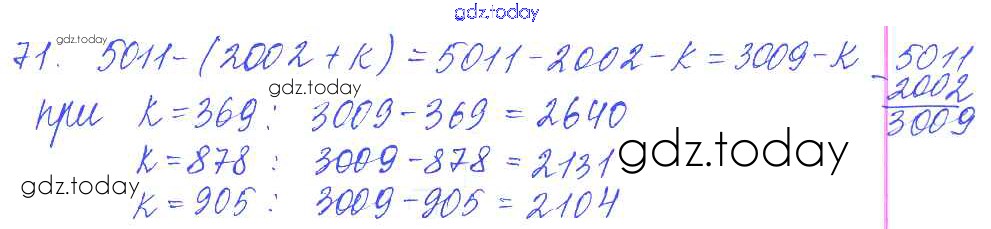 gdz.today
71. gdz.today 5011-(2002+к)=5011-2002-к=3009-к
5011
- 2002
3009
при gdz.today к=369: 3009-369=2640
к=878: 3009-878=2131 gdz.today
gdz.today к=905: 3009-905=2104